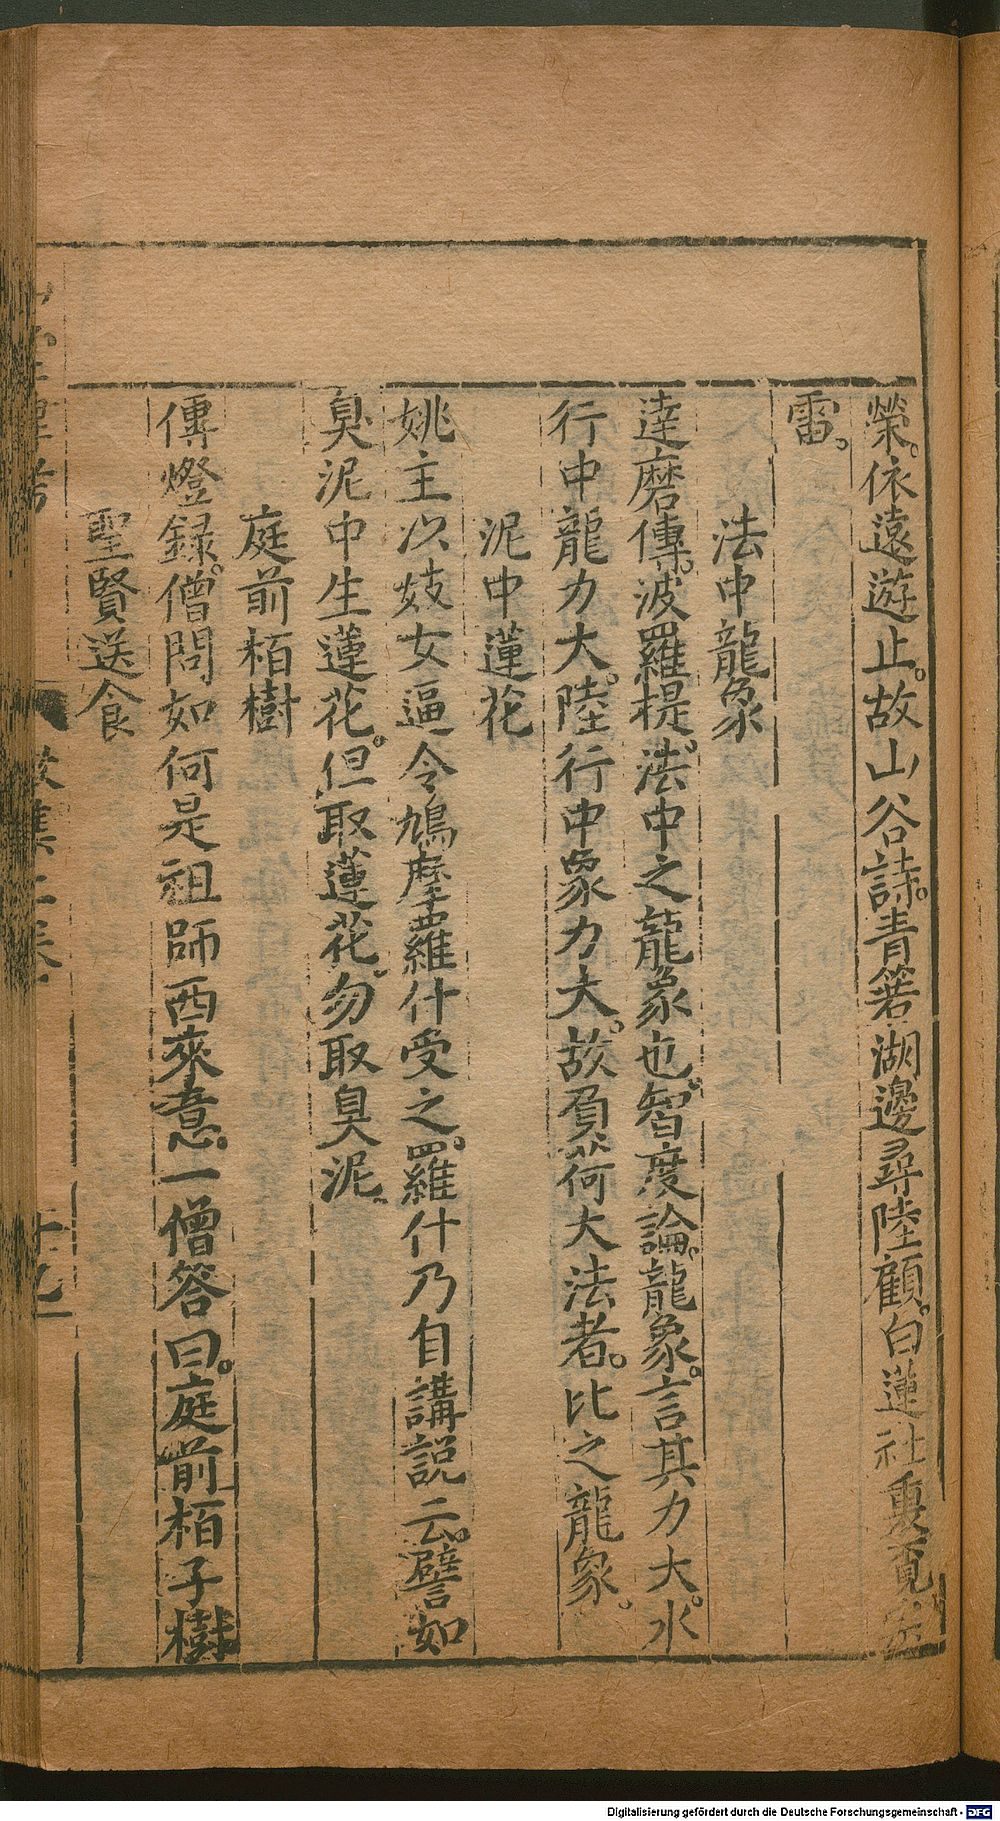 榮。依遠遊止。故山谷詩。青箬湖邊尋陸顧。白蓮社裏覔宗
雷。
法中龍象
達磨傳。波羅提。法中之龍象也。智度論。龍象。言其力大。水
行中龍力大。陸行中象力大。故負荷大法者。比之龍象。
泥中蓮花
姚主以妓女逼令鳩摩羅什受之。羅什乃自講説云。譬如
臭泥中生蓮花。但取蓮花。勿取臭泥。
庭前栢樹
傳燈録。僧問如何是祖師西來意。一僧答曰。庭前栢子樹
聖賢送食
十九
Digitalisierung gefördert durch die Deutsche Forschungsgemeinschaft - DFG